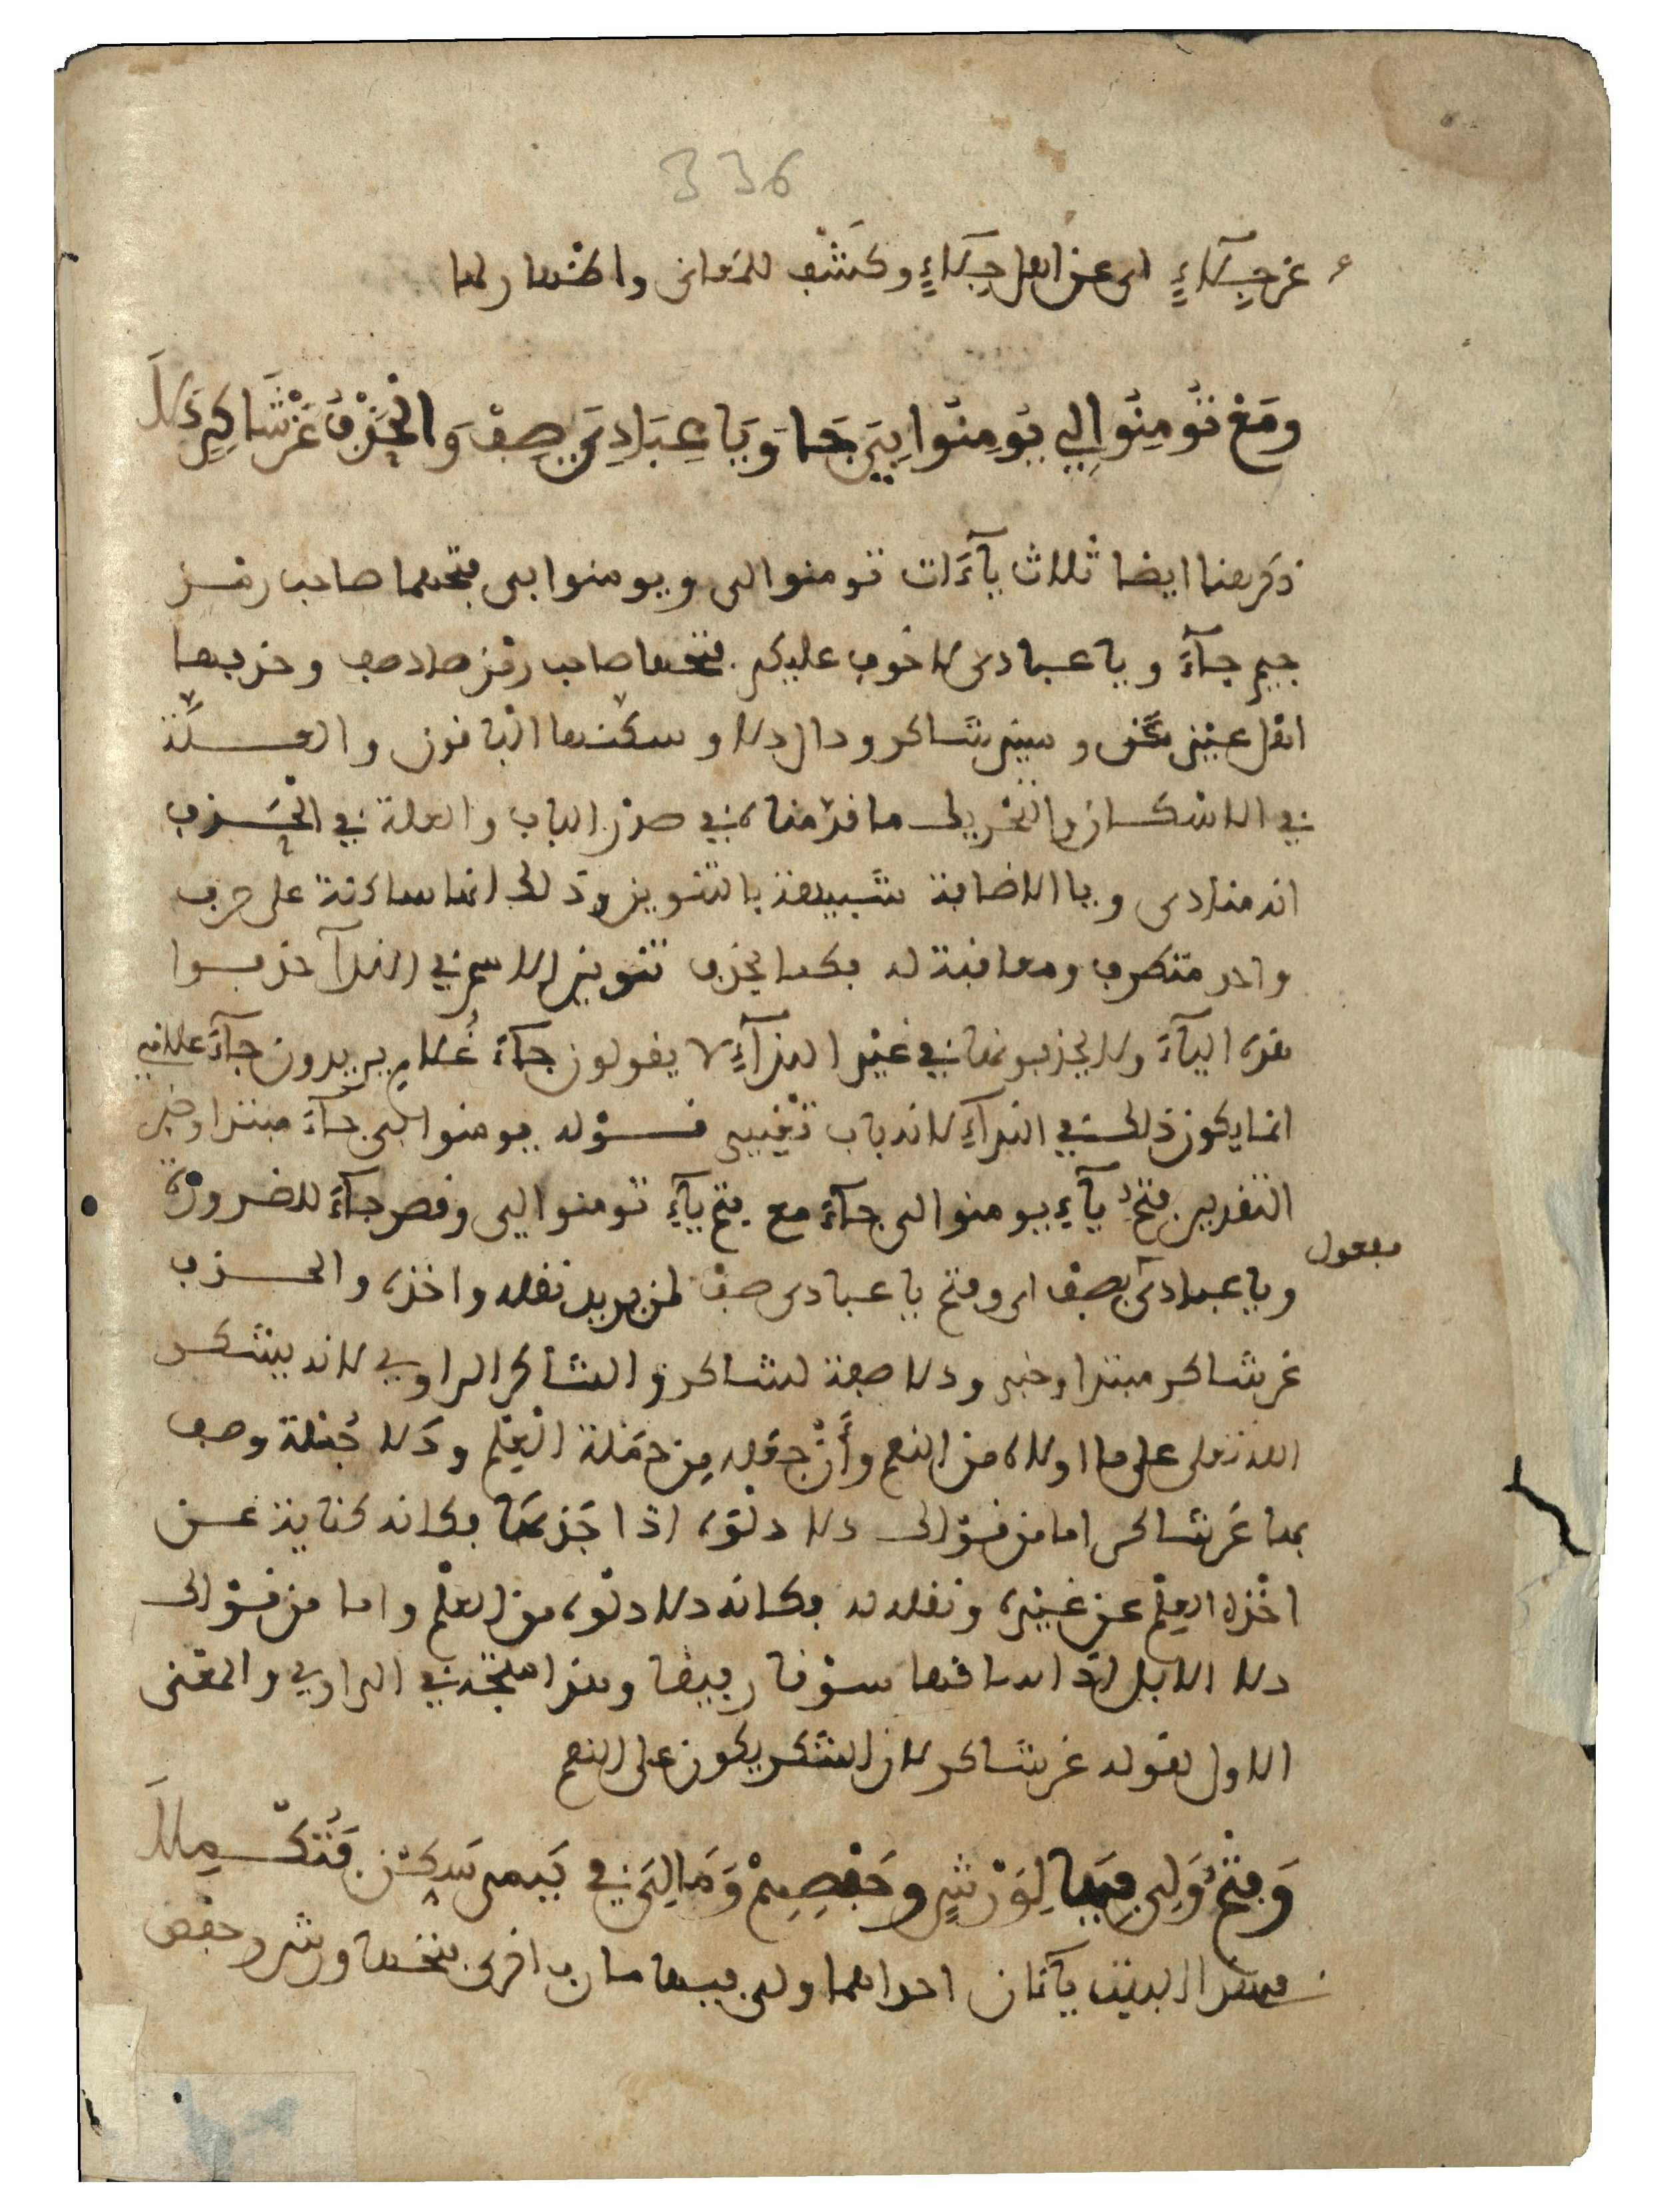 336
عن جلاء اي عن اهل جلاء وكشف للمعاني واظهار لها
ومع تؤمنوا لي يؤمنوا بي جا ويا عبادي صف والحذف عن شاكر دلا
ذكر هنا ايضا ثلاث ياءات تومنوا لي ويومنوا بي فتحهما صاحب رمز
جيم جاء ويا عبادي لا خوف عليكم فتحها صاحب رمز صاد صف وحذفها
اهل عين عن وشين شاكر ودال دلا وسكنها الباقون والعلة
في الاسكان والتحريك ما قدمناه في صدر الباب والعلة في الحذف
انه منادى ويا الاضافة شبيهة بالتنوين وذلك انها ساكنة على حرف
واحد متطرف ومعاقبة له فكما يحذف تنوين الاسم في الندآ حذفوا
هذه الياء ولا يحذفونها في غير الندآء لا يقولون جاء غلام يريدون جاء غلامي
انما يكون ذلك في الندآء لانه باب تغيير قوله يومنوا بي جاء مبتدا وخبر
التقدير فتح ياء يومنوا بي جاء مع فتح ياء تومنوا لي وقصر جاء للضرورة
ويا عبادي صف اي وفتح يا عبادي صف لمن يريد نقله واخذه والحذف
مفعول
عن شاكر مبتدا وخبر ودلا صفة لشاكر والشاكر الراوي لانه يشكر
الله تعلى على ما اولاه من النعم وأن جعله من حملة العلم ودلا جملة وصف
بها عن شاكر اما من قولك دلا دلوه اذا جذبها فكانه كناية عن
اخذه العلم عن غيره ونقله له فكانه دلا دلوه من العلم واما من قولك
دلا الابل اذا ساقها سوقا رفيقا وهذا متجه في الراوي والمعنى
الاول لقوله عن شاكر لان الشكر يكون على النعم
وفتح ولي فيها لورش وحفصهم ومالي في يس سكن فتكملا
في هذا البيت ياءان احداهما ولي فيها مآرب اخرى فتحها ورش وحفص